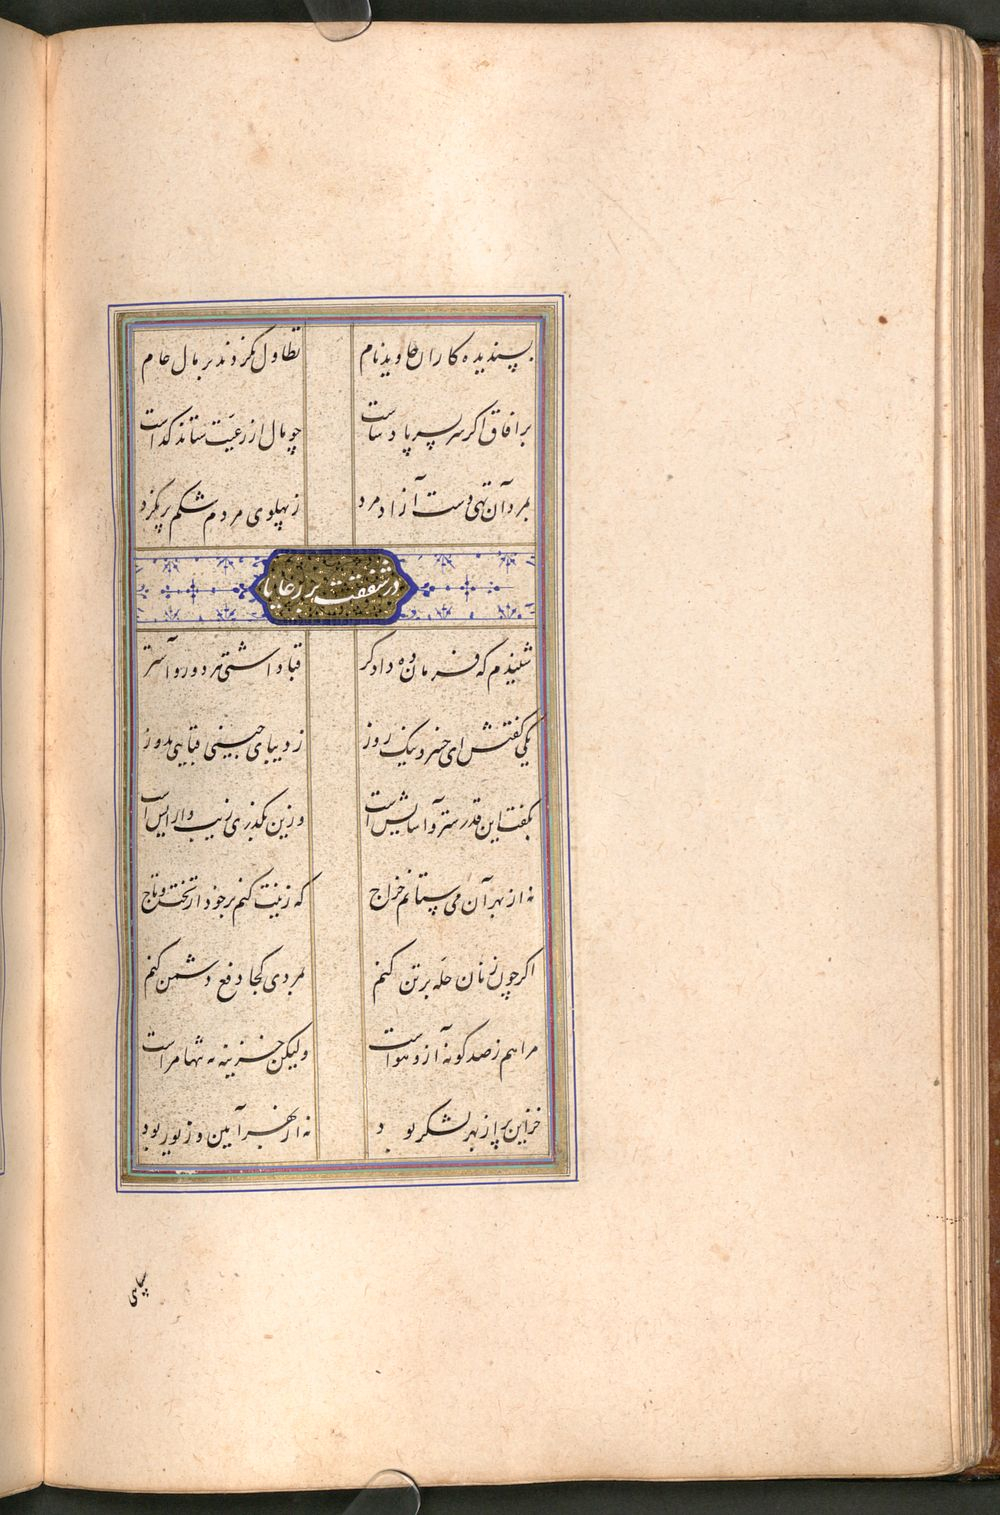 پسندیده کاران جاوید نام تطاول نکردند بر مال عام
بر افاق اکر سر بسر پادشاست چو مال از رعیت ستاند کداست
بمرد آن تهی دست آزاد مرد ز پهلوی مردم شکم پر نکرد
در شفقت بر رعایا
شنیدم که فرمان ده دادکر قبا داشتی هر دو رو آستر
یکی کفتش ای خسرو نیک روز ز دیبای چینی قبایی بدوز
بکفت این قدر ستر و آسایش است وزین بکذری زیب و ارایش است
نه از بهر آن می ستانم خراج که زینت کنم بر خود از تخت و تاج
اکر چون زنان حله بر تن کنم بمردی کجا دفع دشمن کنم
مرا هم ز صد کونه آز و هواست ولیکن خزینه نه تنها مراست
خزاین پر از بهر لشکر بود نه از بهر آیین و زیور بود
سپاهی